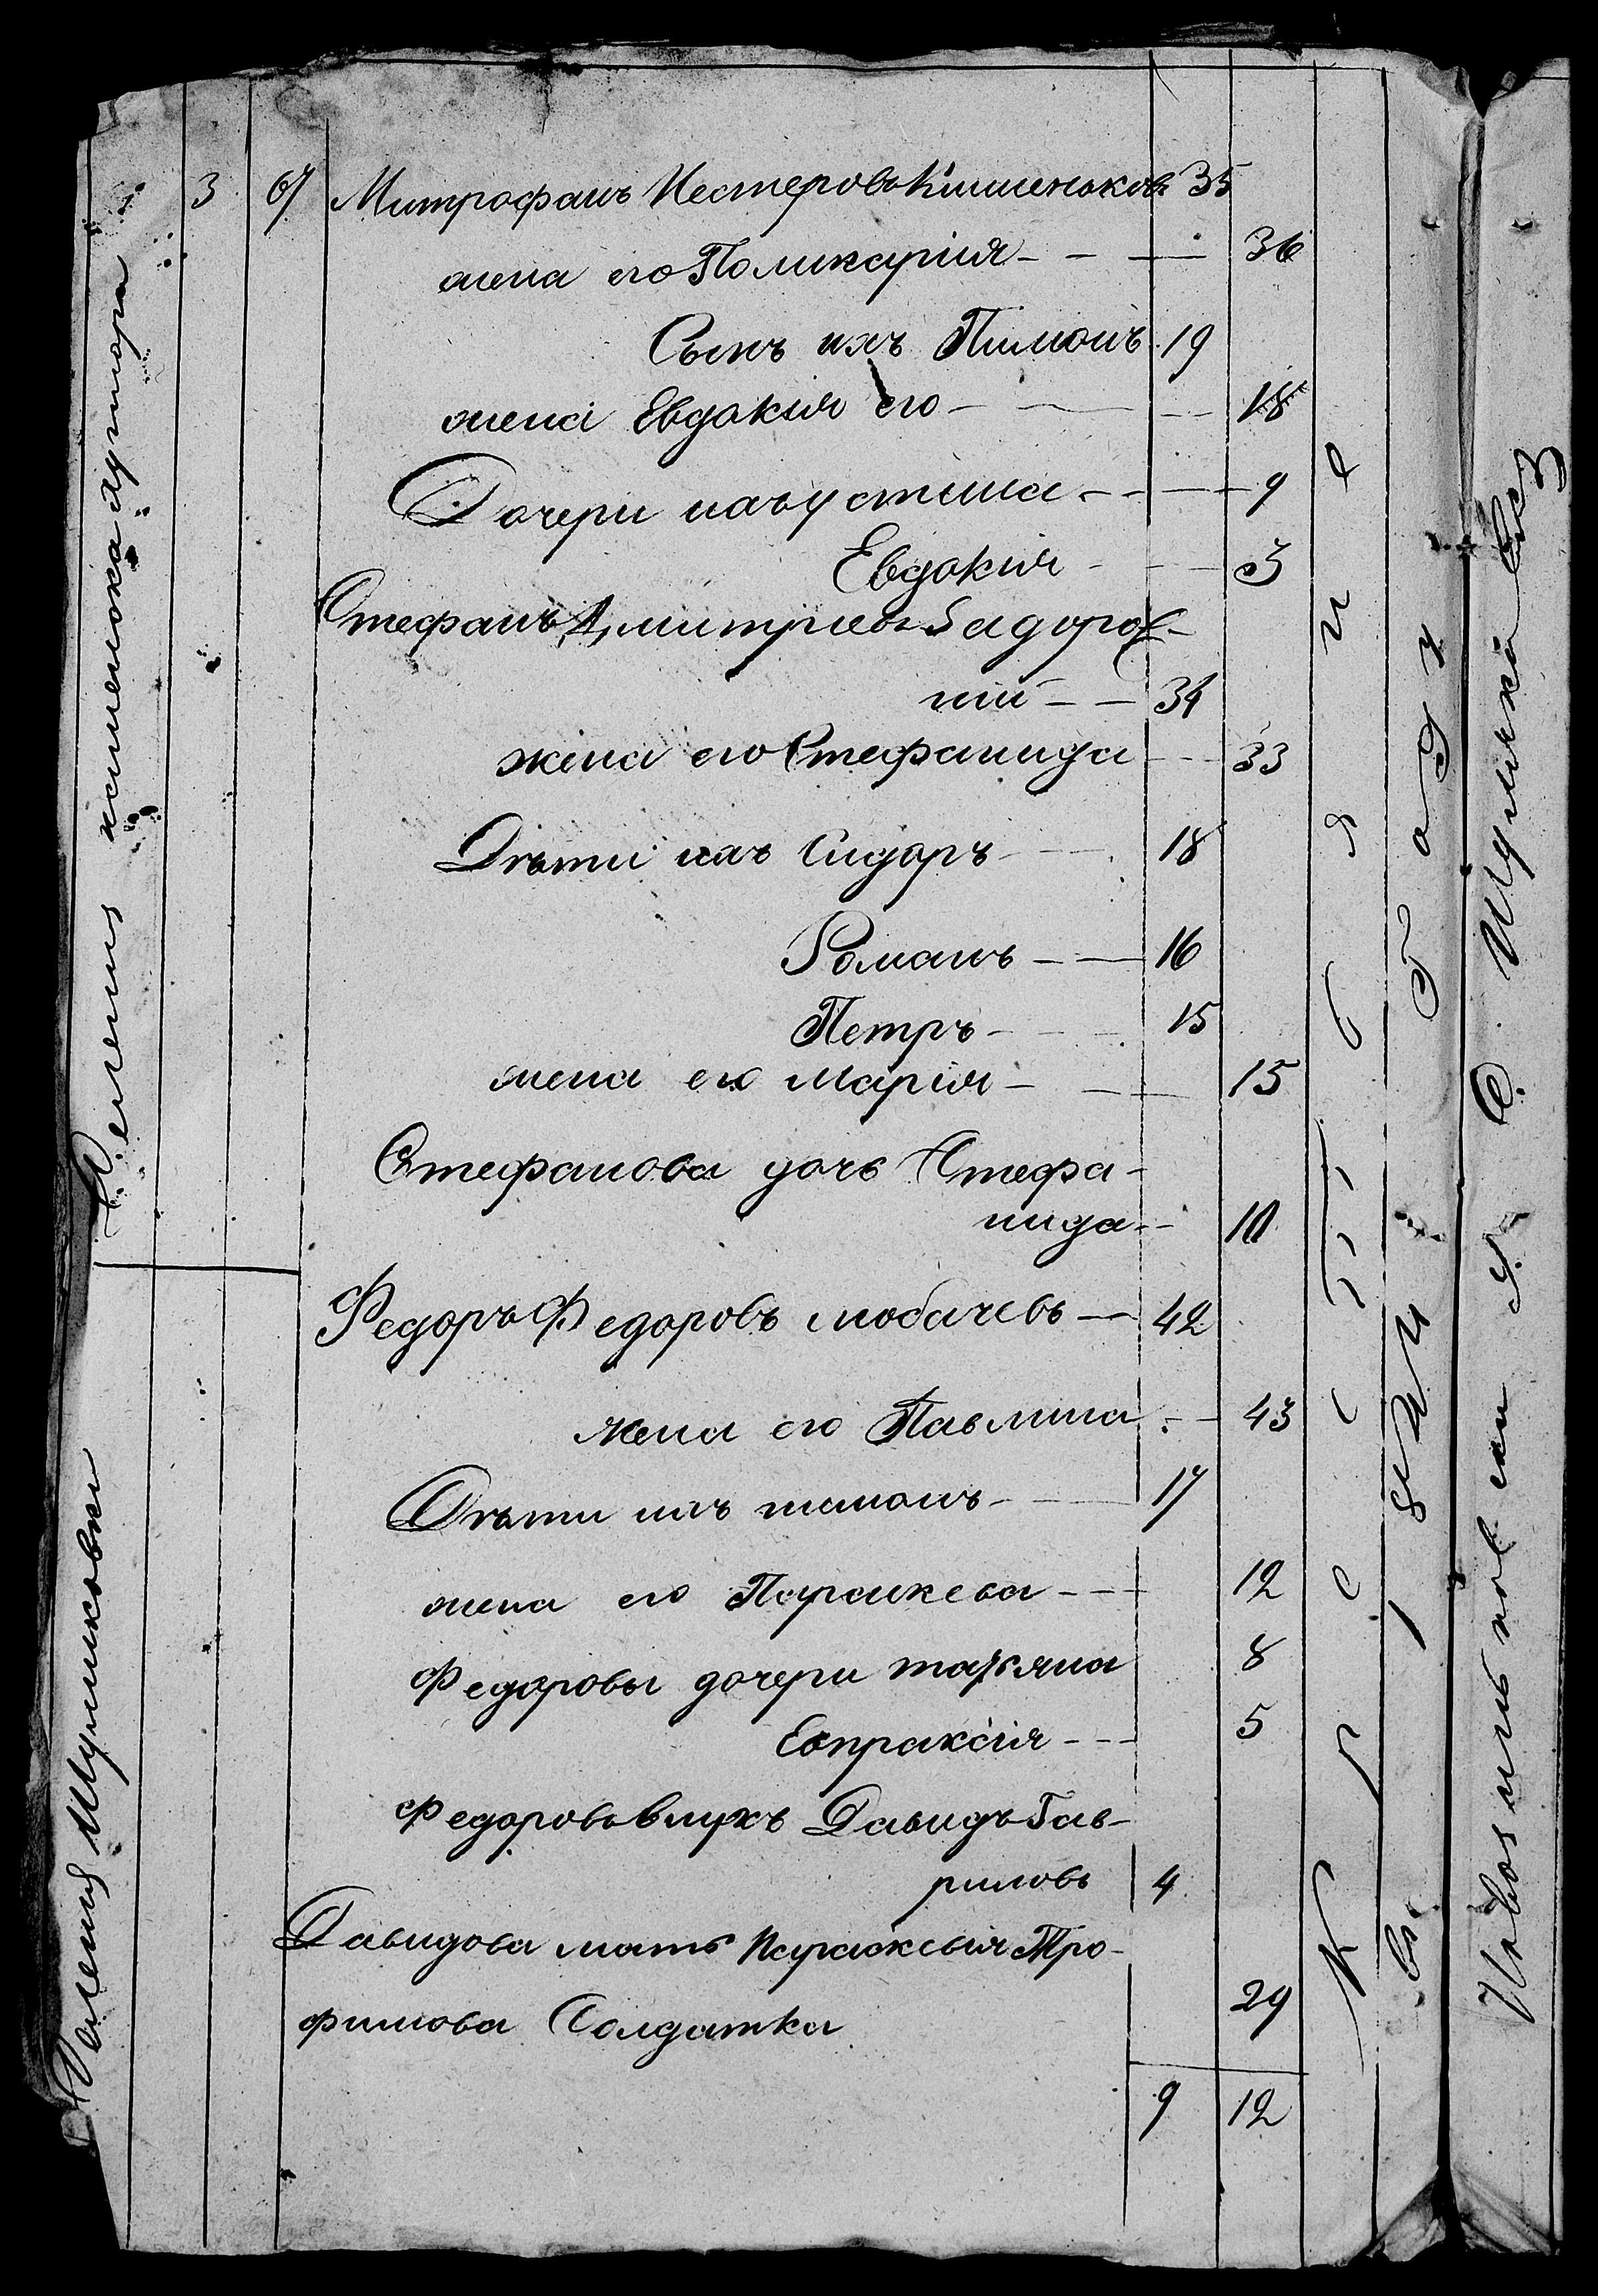 3 67 Митрофанъ Нестеровъ Кишеньковъ 35
жена его Поликарпія 36
Сынъ ихъ Пимонъ 19
жена Евдокія его 18
Дочери ихъ Устинія 9
Евдокія 3
Стефанъ Дмитріевъ Задорож-
ній 34
жена его Стефанида 33
Дѣти ихъ Сидоръ 18
Романъ 16
Петръ 15
жена его Марія 15
Стефанова дочь Стефа-
нида 10
Федоръ Федоровъ Лобачевъ 42
жена его Павлина 43
Дѣти ихъ Тимонъ 17
жена его Параскева 12
Федоровы дочери Татьяна 8
Евпраксія 5
Федоровъ внукъ Давидъ Гав-
риловъ 4
Давидова мать Параскевія Тро-
фимова Солдатка 29
9 12
Селенія
Селенія Шульжиковки
К р е с т ь я н е
въ 1 8 году